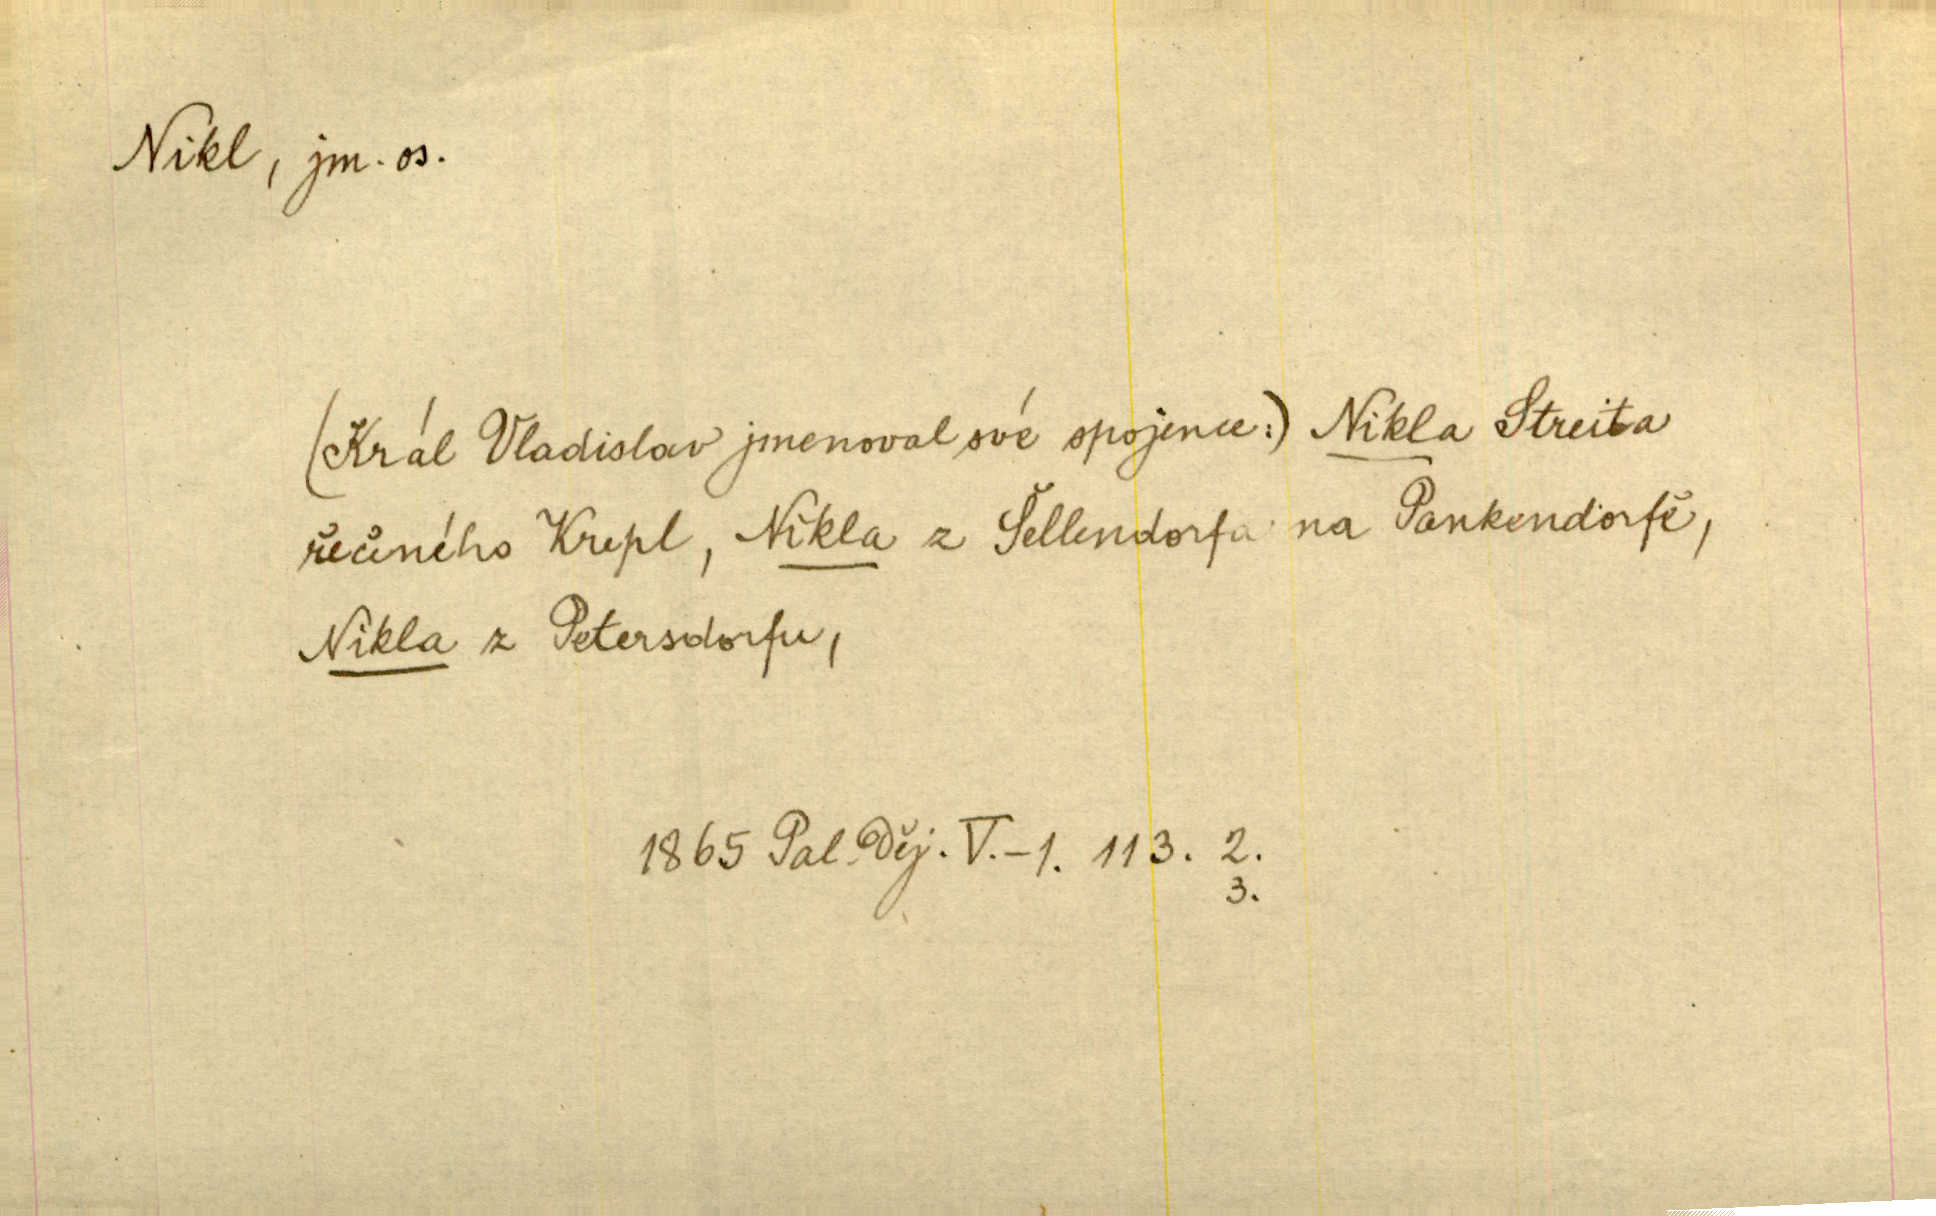 Nikl, jm. os.
(Král Vladislav jmenoval své spojence:) Nikla Streita
řečného Krepl, Nikla z Šellendorfa na Pankendorfě,
Nikla z Petersdorfu,
1865 Pal. Děj. V.-1. 113. 2.
3.